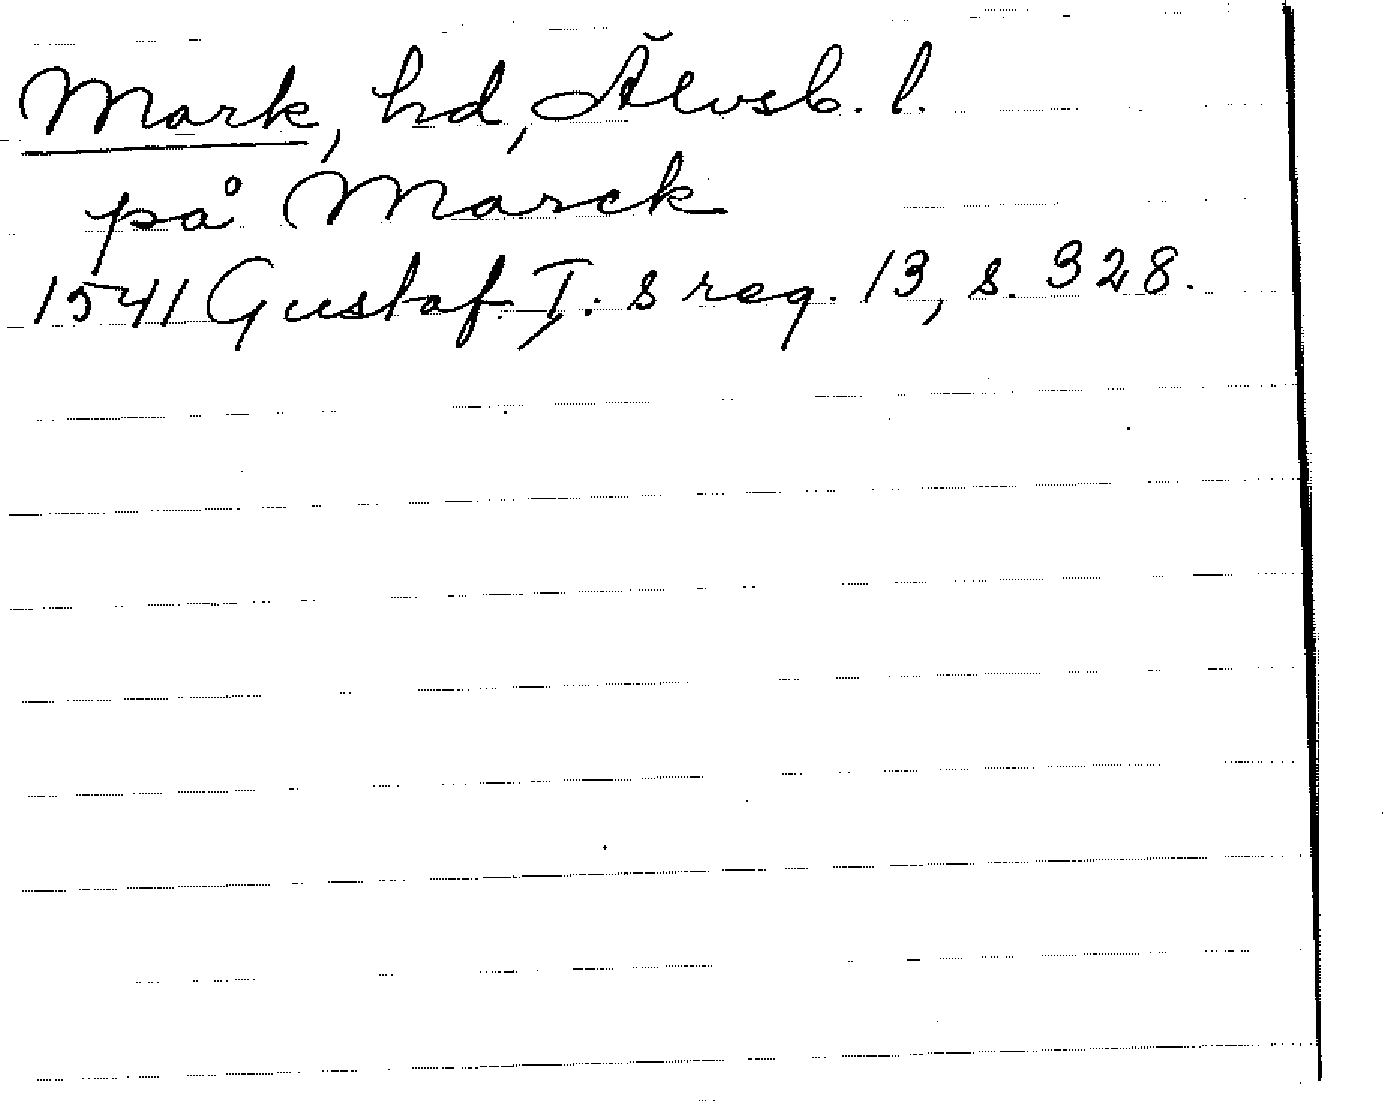 Mark, hd, Älvsb. l.
på Marck
1541 Gustaf I:s reg. 13, s. 328.